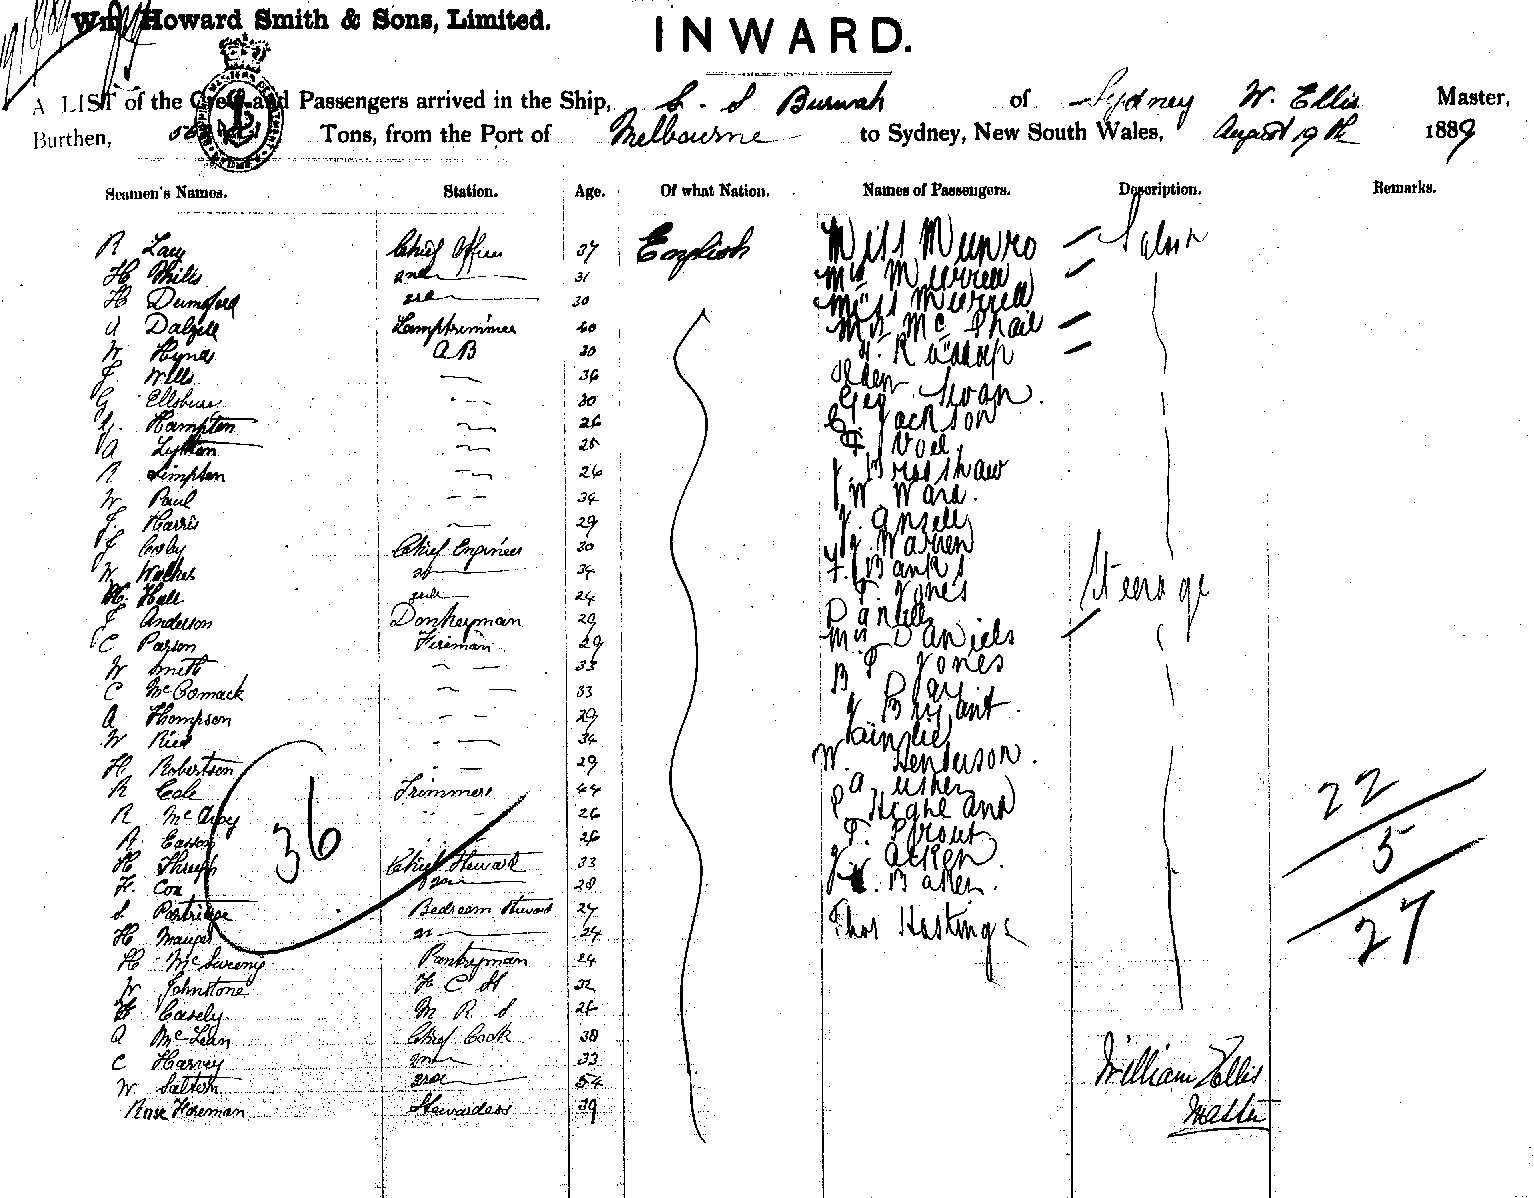 Wm. Howard Smith & Sons, Limited.
INWARD.
A LIST of the Crew and Passengers arrived in the Ship, S. S Burwah of Sydney W. Ellis Master,
Burthen, Tons, from the Port of Melbourne to Sydney, New South Wales, August 19th 1889
Seamen's Names. Station. Age. Of what Nation. Names of Passengers. Description. Remarks.
R Chief Officer 37 English Miss Munro Saloon
H Mills 2nd 31 Mrs Murrell
H Dumford 3rd 30 Miss Murrell
A Dalzell Lamptrimmer 40 Mrs McPhail
W Hynds A B 30
J. Wills 36
G Ellsbure 30 Geo Swan
G. Hampton 26 Jackson
A Lytton 25
R Simpson 26 J. Bradshaw
W Paul 34 J. W Ward.
J. Harris 29 J. Ansell
J Cosby Chief Engineer 30 J. Warren
W. Walker 2nd 34 F. Banks
H. Hall 3rd 24 T. Jones Steerage
J Anderson Donkeyman 29 Daniells
C Parson Fireman 29 Mrs Daniels
W Smith 33 T Jones
C McComack 33
A Thompson 29 J Bryant
W Ried 34
H Robertson 29 W. Henderson
R Cole Trimmers 44 A Usher
R 26 P Heghland
R Easson 26 T. Sprout
H Chief Steward 33 J. Aiken
H. Cox 2nd 28 J. Baker.
S Partridge Bedroom Steward 27 Thos Hastings
H Mauger 2nd 24
H McSweeny Pantryman 24
W Johnstone F C St 32
H Casely M R S 26
A McLean Chief Cook 38
C Harvey 2nd 33
W Salton 3rd 54
Rose Foreman Stewardess 39
36
22
5
27
William Ellis
Master